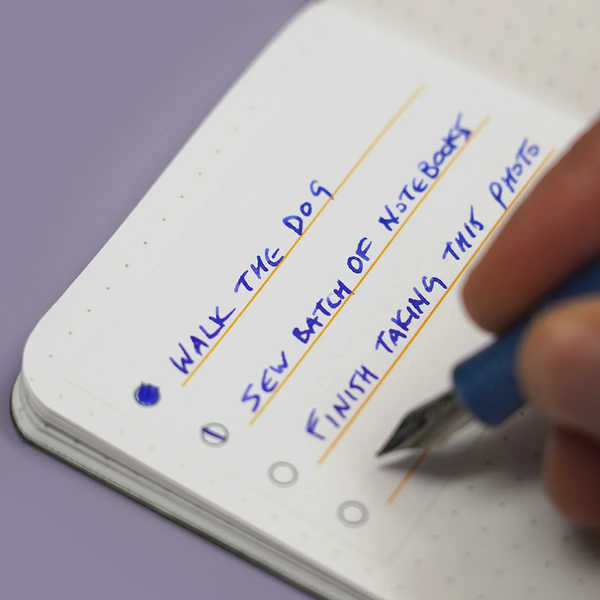 WALK THE DOG
SEW BATCH OF NOTEBOOKS
FINISH TAKING THIS PHOTO